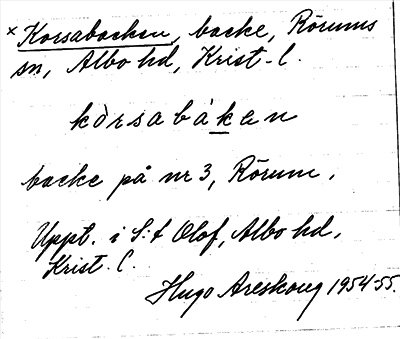 × Korsabacken, backe, Rörums
sn, Albo hd, Krist. l.
kòrsabáken
backe på nr 3, Rörum.
Uppt. i S:t Olof, Albo hd,
Krist. l.
Hugo Areskoug 1954-55.